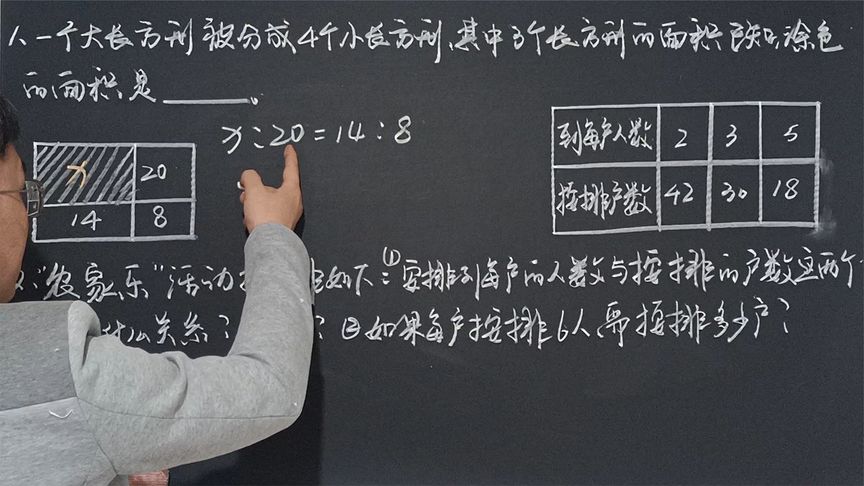 1.一个大长方形被分成4个小长方形,其中3个长方形的面积已知,涂色
的面积是____。
x:20=14:8
x 20
14 8
到每户人数 2 3 5
按排户数 42 30 18
2."农家乐"活动 如下:①按排到每户的人数与按排的户数这两个
什么关系? ? ②如果每户按排6人需按排多少户?